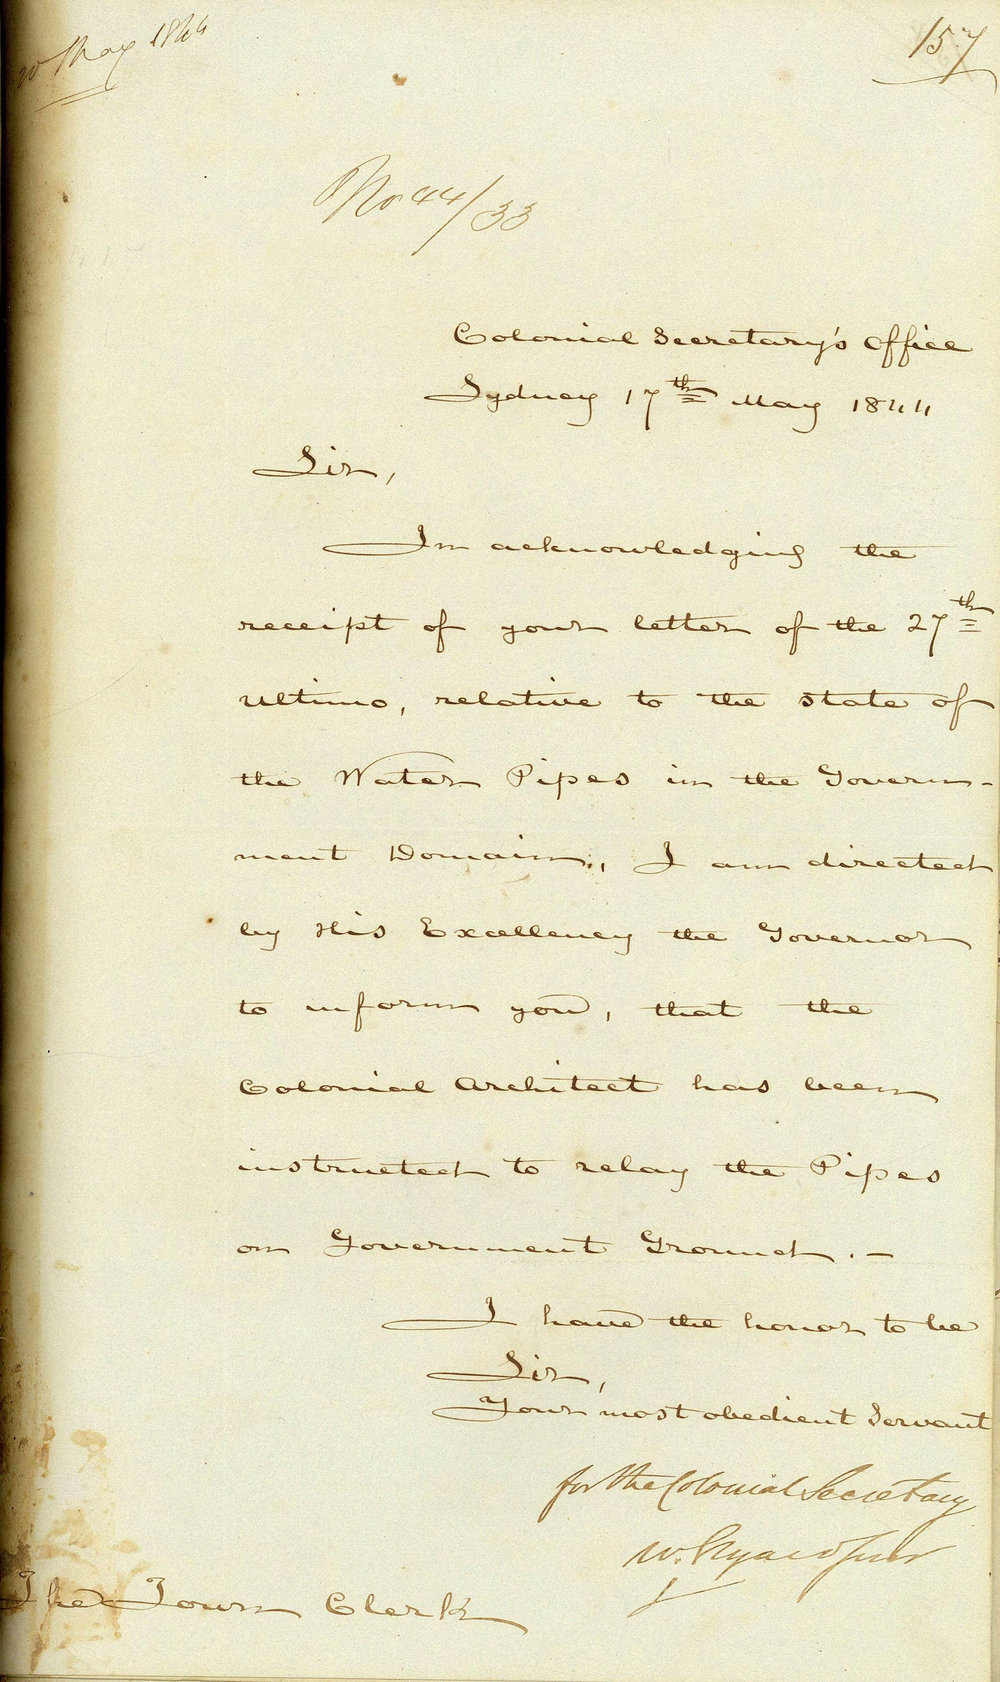 May 1844
157
No 44/33
Colonial Secretary's Office
Sydney 17th May 1844
Sir,
In acknowledging the
receipt of your letter of the 27th
Ultimo, relative to the state of
the Water Pipes in the Govern-
ment Domain, I am directed
by His Excellency the Governor
to inform you, that the
Colonial Architect has been
instructed to relay the Pipes
on Government Ground. —
I have the honor to be
Sir,
Your most obedient Servant
for the Colonial Secretary
W.
The Town Clerk